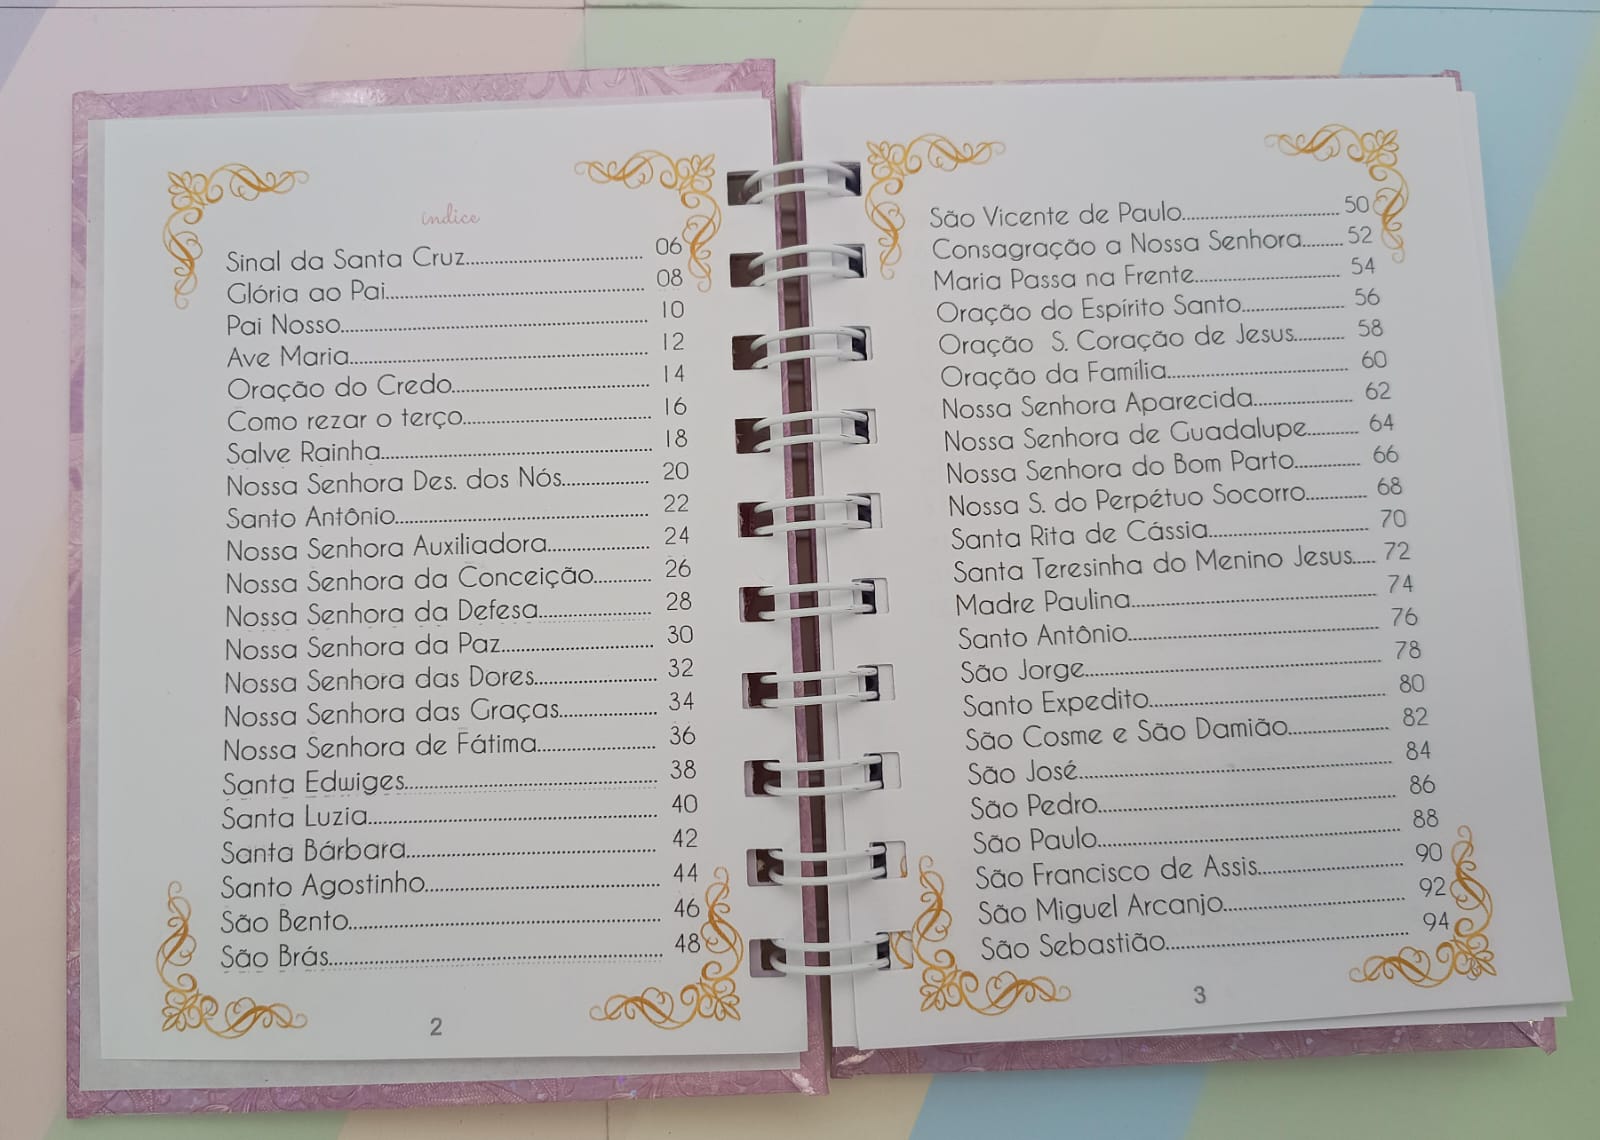 índice
Sinal da Santa Cruz 06
Glória ao Pai 08
Pai Nosso 10
Ave Maria 12
Oração do Credo 14
Como rezar o terço 16
Salve Rainha 18
Nossa Senhora Des. dos Nós 20
Santo Antônio 22
Nossa Senhora Auxiliadora 24
Nossa Senhora da Conceição 26
Nossa Senhora da Defesa 28
Nossa Senhora da Paz 30
Nossa Senhora das Dores 32
Nossa Senhora das Graças 34
Nossa Senhora de Fátima 36
Santa Edwiges 38
Santa Luzia 40
Santa Bárbara 42
Santo Agostinho 44
São Bento 46
São Brás 48
2
São Vicente de Paulo 50
Consagração a Nossa Senhora 52
Maria Passa na Frente 54
Oração do Espírito Santo 56
Oração S. Coração de Jesus 58
Oração da Família 60
Nossa Senhora Aparecida 62
Nossa Senhora de Guadalupe 64
Nossa Senhora do Bom Parto 66
Nossa S. do Perpétuo Socorro 68
Santa Rita de Cássia 70
Santa Teresinha do Menino Jesus 72
Madre Paulina 74
Santo Antônio 76
São Jorge 78
Santo Expedito 80
São Cosme e São Damião 82
São José 84
São Pedro 86
São Paulo 88
São Francisco de Assis 90
São Miguel Arcanjo 92
São Sebastião 94
3